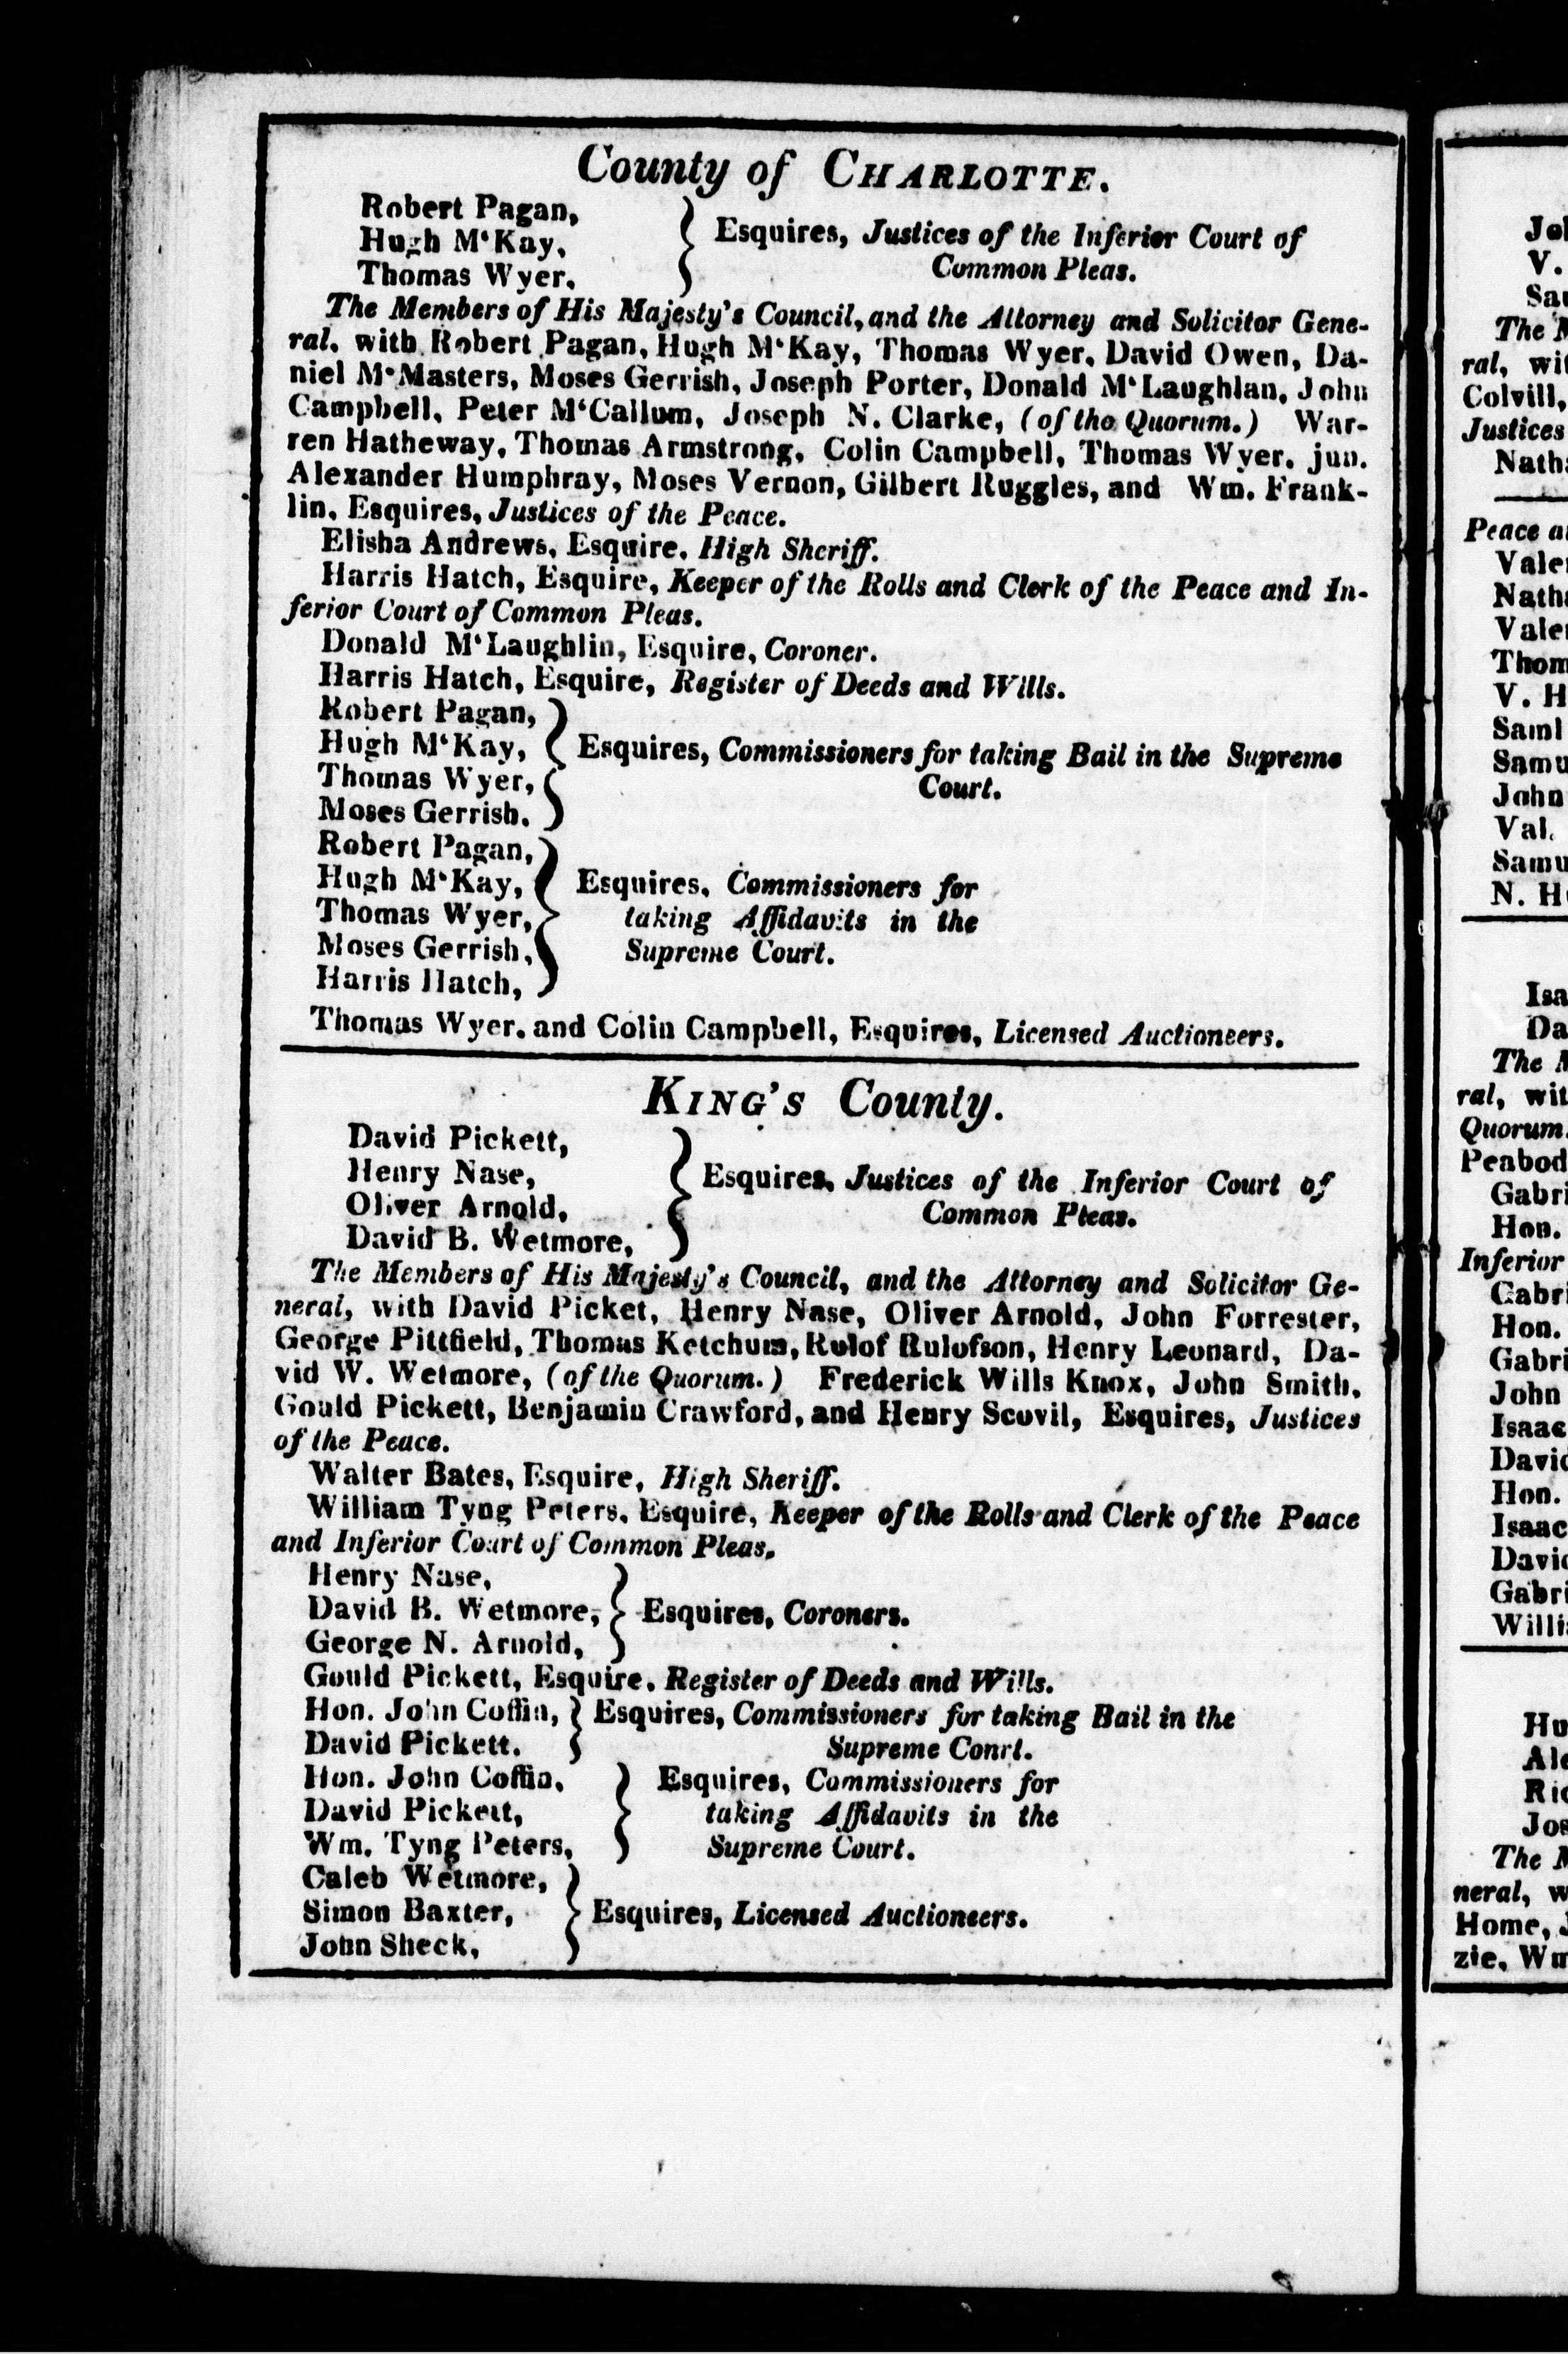 County of CHARLOTTE.
Robert Pagan,
Hugh M'Kay,
Thomas Wyer,
Esquires, Justices of the Inferior Court of
Common Pleas.
The Members of His Majesty's Council, and the Attorney and Solicitor Gene-
ral, with Robert Pagan, Hugh M'Kay, Thomas Wyer, David Owen, Da-
niel M'Masters, Moses Gerrish, Joseph Porter, Donald M'Laughlan, John
Campbell, Peter M'Callum, Joseph N. Clarke, (of the Quorum.) War-
ren Hatheway, Thomas Armstrong, Colin Campbell, Thomas Wyer, jun.
Alexander Humphray, Moses Vernon, Gilbert Ruggles, and Wm. Frank-
lin, Esquires, Justices of the Peace.
Elisha Andrews, Esquire, High Sheriff.
Harris Hatch, Esquire, Keeper of the Rolls and Clerk of the Peace and In-
ferior Court of Common Pleas.
Donald M'Laughlin, Esquire, Coroner.
Harris Hatch, Esquire, Register of Deeds and Wills.
Robert Pagan,
Hugh M'Kay,
Thomas Wyer,
Moses Gerrish.
Esquires, Commissioners for taking Bail in the Supreme
Court.
Robert Pagan,
Hugh M'Kay,
Thomas Wyer,
Moses Gerrish,
Harris Hatch,
Esquires, Commissioners for
taking Affidavits in the
Supreme Court.
Thomas Wyer, and Colin Campbell, Esquires, Licensed Auctioneers.
KING'S County.
David Pickett,
Henry Nase,
Oliver Arnold,
David B. Wetmore,
Esquires, Justices of the Inferior Court of
Common Pleas.
The Members of His Majesty's Council, and the Attorney and Solicitor Ge-
neral, with David Picket, Henry Nase, Oliver Arnold, John Forrester,
George Pittfield, Thomas Ketchum, Rulof Rulofson, Henry Leonard, Da-
vid W. Wetmore, (of the Quorum.) Frederick Wills Knox, John Smith,
Gould Pickett, Benjamin Crawford, and Henry Scovil, Esquires, Justices
of the Peace.
Walter Bates, Esquire, High Sheriff.
William Tyng Peters, Esquire, Keeper of the Rolls and Clerk of the Peace
and Inferior Court of Common Pleas.
Henry Nase,
David B. Wetmore,
George N. Arnold,
Esquires, Coroners.
Gould Pickett, Esquire, Register of Deeds and Wills.
Hon. John Coffin,
David Pickett.
Esquires, Commissioners for taking Bail in the
Supreme Conrt.
Hon. John Coffin,
David Pickett,
Wm. Tyng Peters,
Esquires, Commissioners for
taking Affidavits in the
Supreme Court.
Caleb Wetmore,
Simon Baxter,
John Sheck,
Esquires, Licensed Auctioneers.
V.
The
ral,
Colvill,
Justices
Peace
V. H
John
Val.
The
ral,
Quorum
Hon.
Inferior
Hon.
John
Isaac
Hon.
Isaac
The
neral,
Home,
zie,